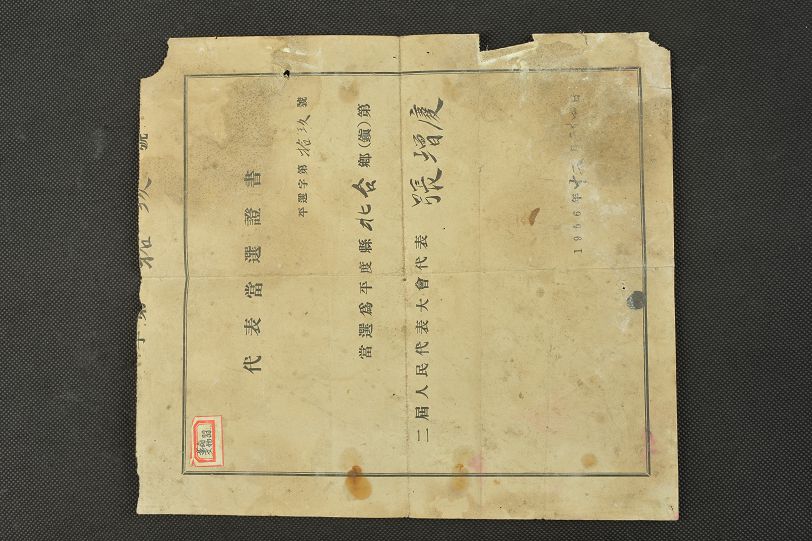 字第拾玖號
代表當選證書
平選字第拾玖號
當選爲平度縣北合鄉(鎮)第
二屆人民代表大會代表 張增慶
1956年 月 日